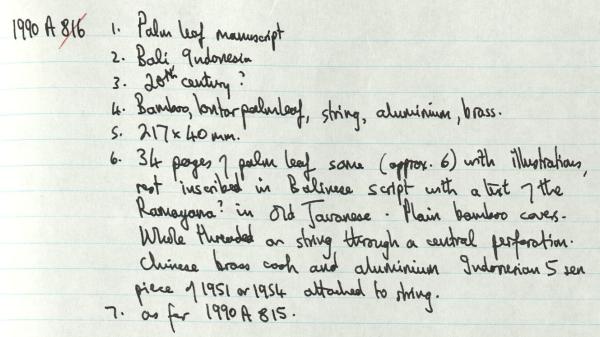 1990 A 816 1. Palm leaf manuscript
2. Bali, Indonesia
3. 20th century?
4. Bamboo, lontar palm leaf, string, aluminium, brass.
5. 217 x 40 mm.
6. 34 pages of palm leaf some (approx. 6) with illustrations,
rest inscribed in Balinese script with a text of the
Ramayana? in Old Javanese. Plain bamboo covers.
Whole threaded on string through a central perforation.
Chinese brass cash and aluminium Indonesian 5 sen
piece of 1951 or 1954 attached to string.
7. as for 1990 A 815.